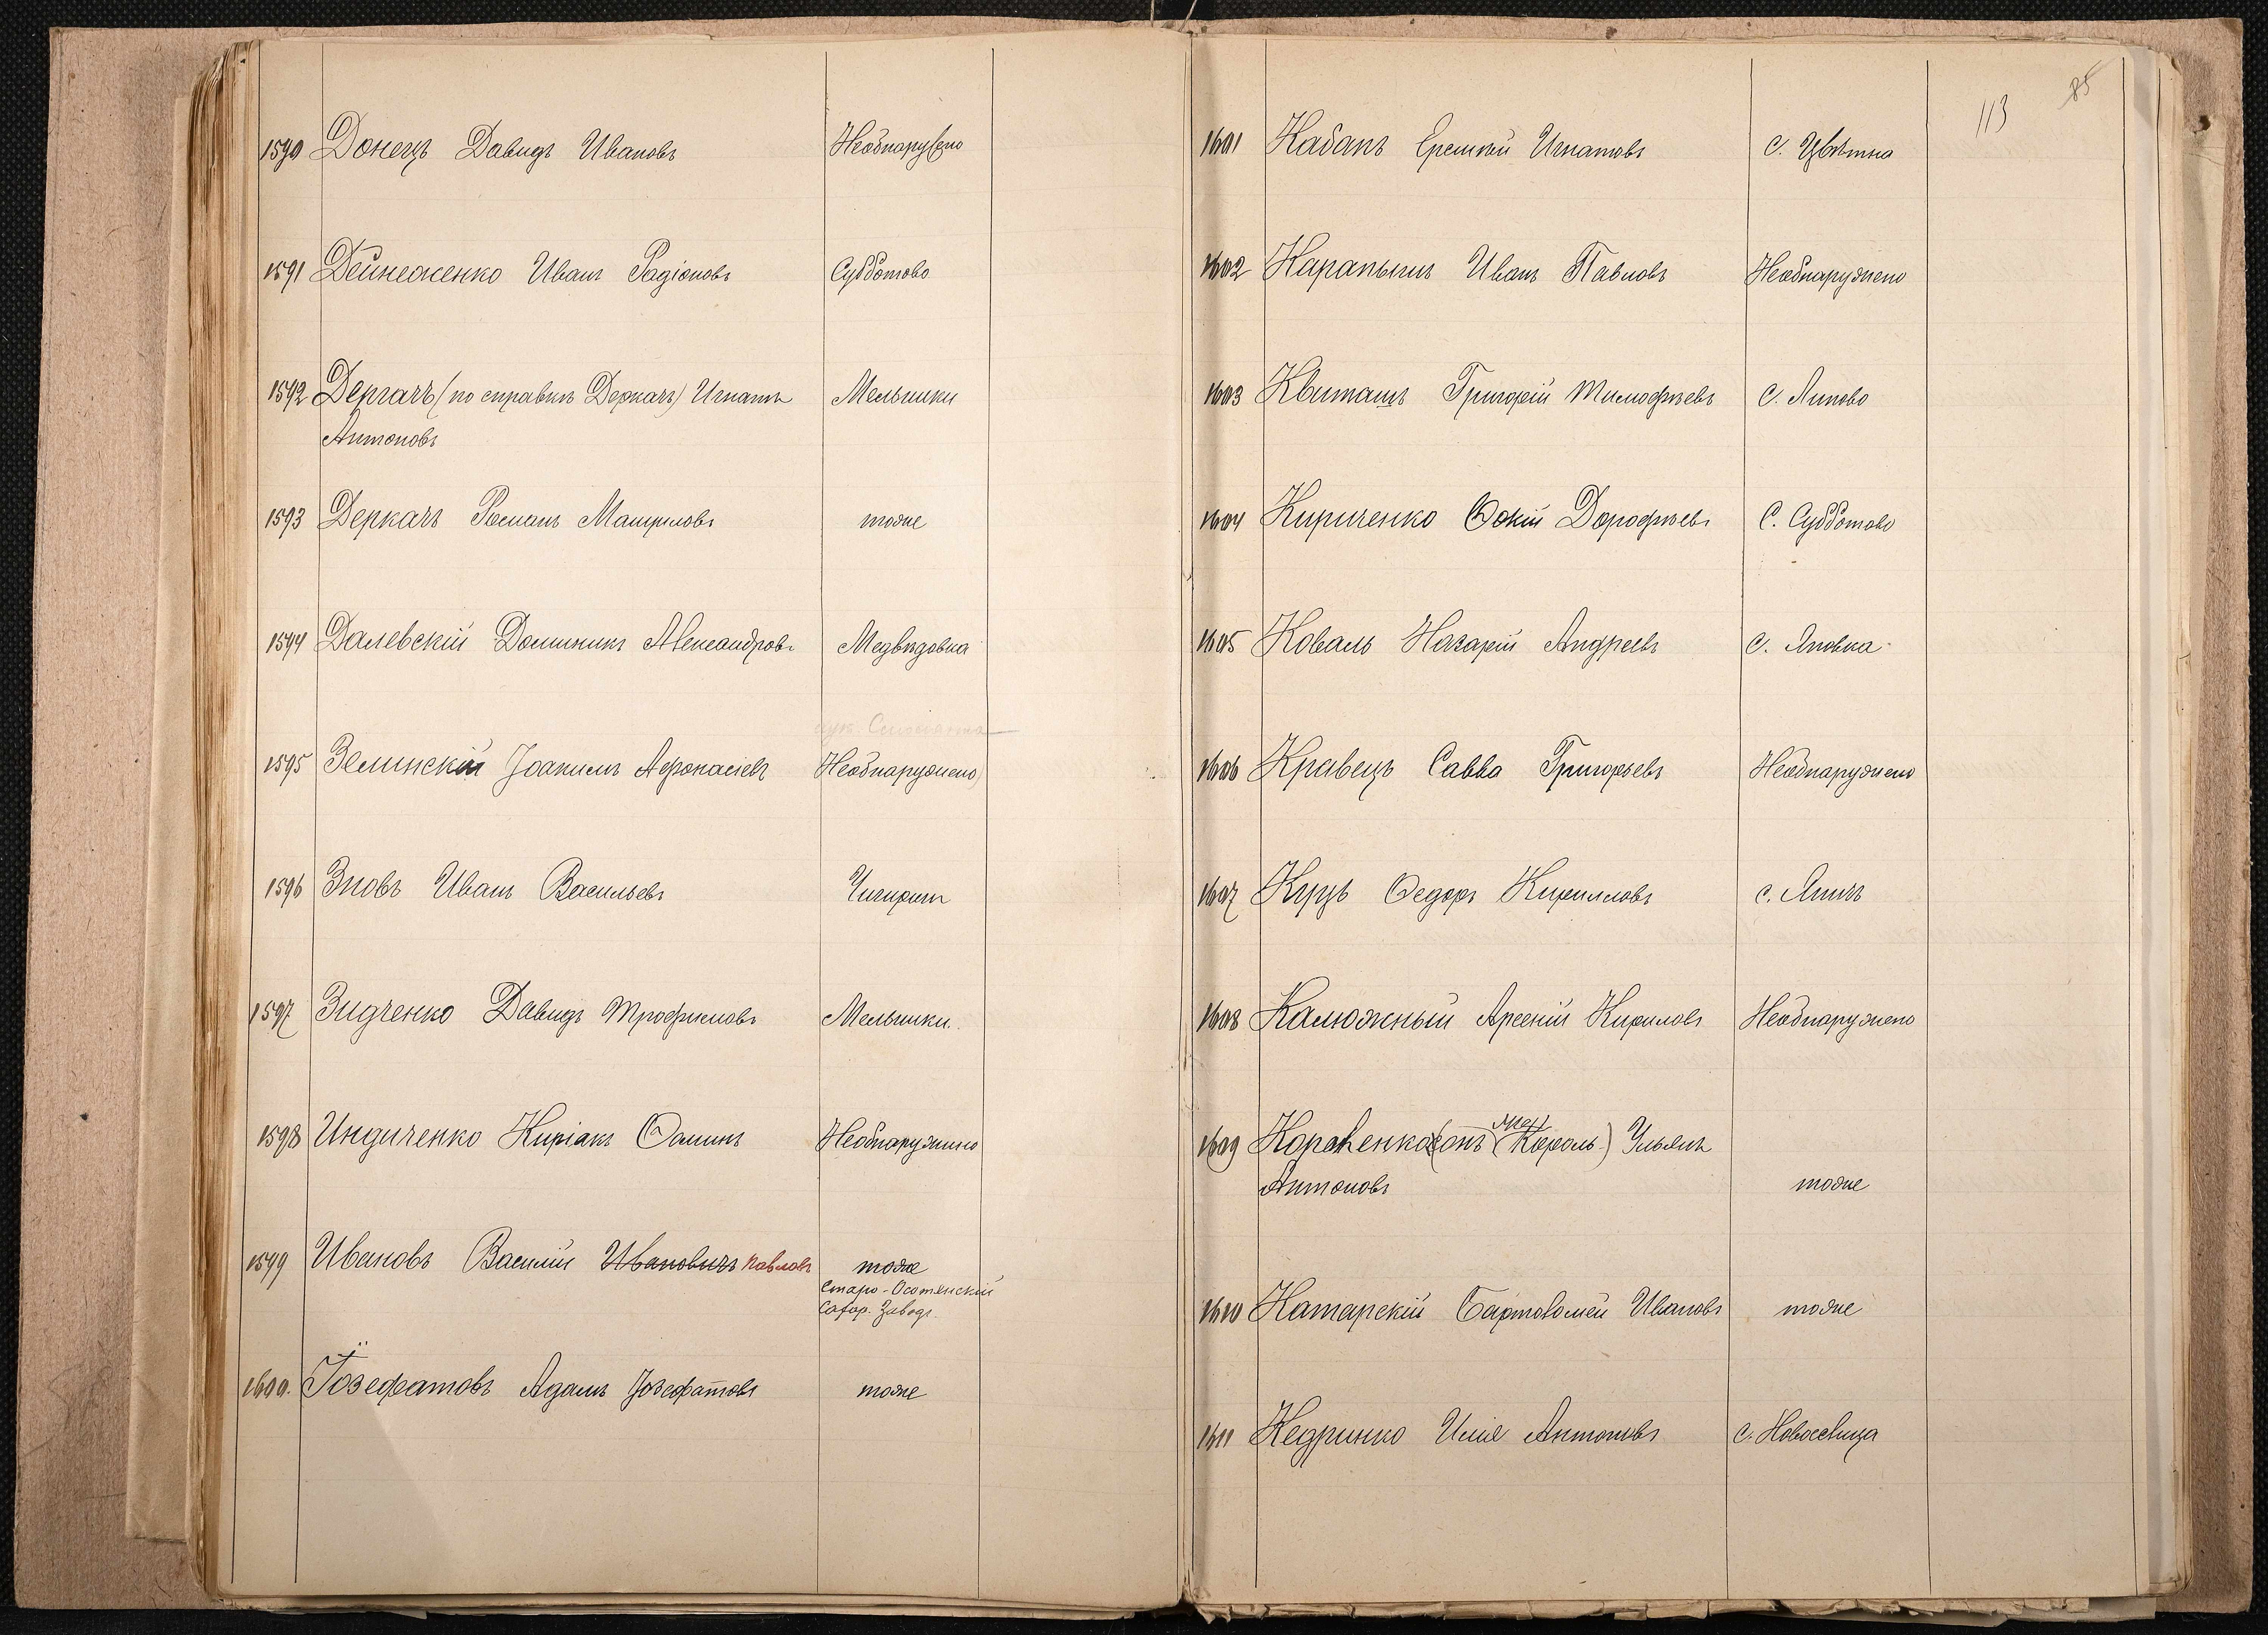 1590 Донецъ Давидъ Ивановъ Необнаружено
1591 Дейнеженко Иванъ Радіоновъ Субботово
1592 Дергачъ (по справкѣ Деркачъ) Игнатъ Мельники
Антоновъ
1593 Деркачъ Романъ тоже
1594 Далевскій Доминикъ Александровъ Медвѣдовка
1595 Зелинскій Іоакимъ Афонасіевъ Необнаружено
1596 Зновъ Иванъ Васильевъ Чигирин
1597 Зидченко Давидъ Трофимовъ Мельники
1598 Индиченко Киріакъ Ѳоминъ Необнаружено
1599 Ивановъ Василій Ивановичъ Павловъ тоже
Старо-Осотянскій
Сахар. Заводъ.
1600. Іозефатовъ Адамъ Іозефатовъ тоже
113
85
1601 Кабанъ Еремѣй Игнатовъ с. Цвѣтна
1602 Карапышъ Иванъ Павловъ Необнаружено
1603 Квиташъ Григорій Тимофѣевъ с. Липово
1604 Кириченко Дорофѣевъ С. Субботово
1605 Коваль Назарій Андреевъ с.
1606 Кравецъ Савва Григорьевъ Необнаружено
1607 Куцъ Ѳедоръ Кирилловъ с.
1608 Калюжный Арсеній Кириловъ Необнаружено
1609 (онъ Король) Ульянъ
Антоновъ тоже
1610 Катарскій Бартоломей Ивановъ тоже
1611 Кедринко Илія Антоновъ с. Новоселица